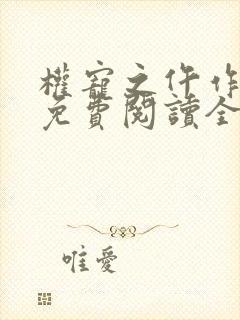 權寵之仵作
免費閱讀全
唯愛